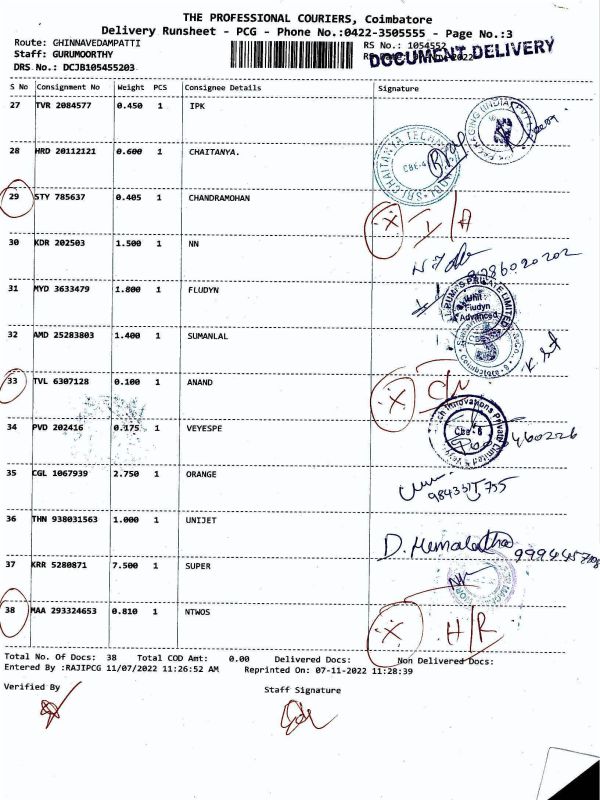 THE PROFESSIONAL COURIERS, Coimbatore
Delivery Runsheet - PCG - Phone No.:0422-3505555 - Page No.:3
Route: GHINNAVEDAMPATTI
Staff: GURUMOORTHY
DRS No.: DCJB105455203
RS No.: 1054552
DOCUMENT DELIVERY
S No Consignment No Weight PCS Consignee Details Signature
27 TVR 2084577 0.450 1 IPK
28 HRD 20112121 0.600 1 CHAITANYA.
29 STY 785637 0.405 1 CHANDRAMOHAN
X I/A
30 KDR 202503 1.500 1 NN
9786020202
31 MYD 3633479 1.800 1 FLUDYN
Unit
Fludyn
Advanced
32 AMD 25283803 1.400 1 SUMANLAL
33 TVL 6307128 0.100 1 ANAND
X
34 PVD 202416 0.175 1 VEYESPE
Cbe-6
460226
35 CGL 1067939 2.750 1 ORANGE
36 THN 938031563 1.000 1 UNIJET
D. Hemalatha
37 KRR 5280871 7.500 1 SUPER
38 MAA 293324653 0.810 1 NTWOS
X H/R
Total No. Of Docs: 38 Total COD Amt: 0.00 Delivered Docs: Non Delivered Docs:
Entered By :RAJIPCG 11/07/2022 11:26:52 AM Reprinted On: 07-11-2022 11:28:39
Verified By Staff Signature